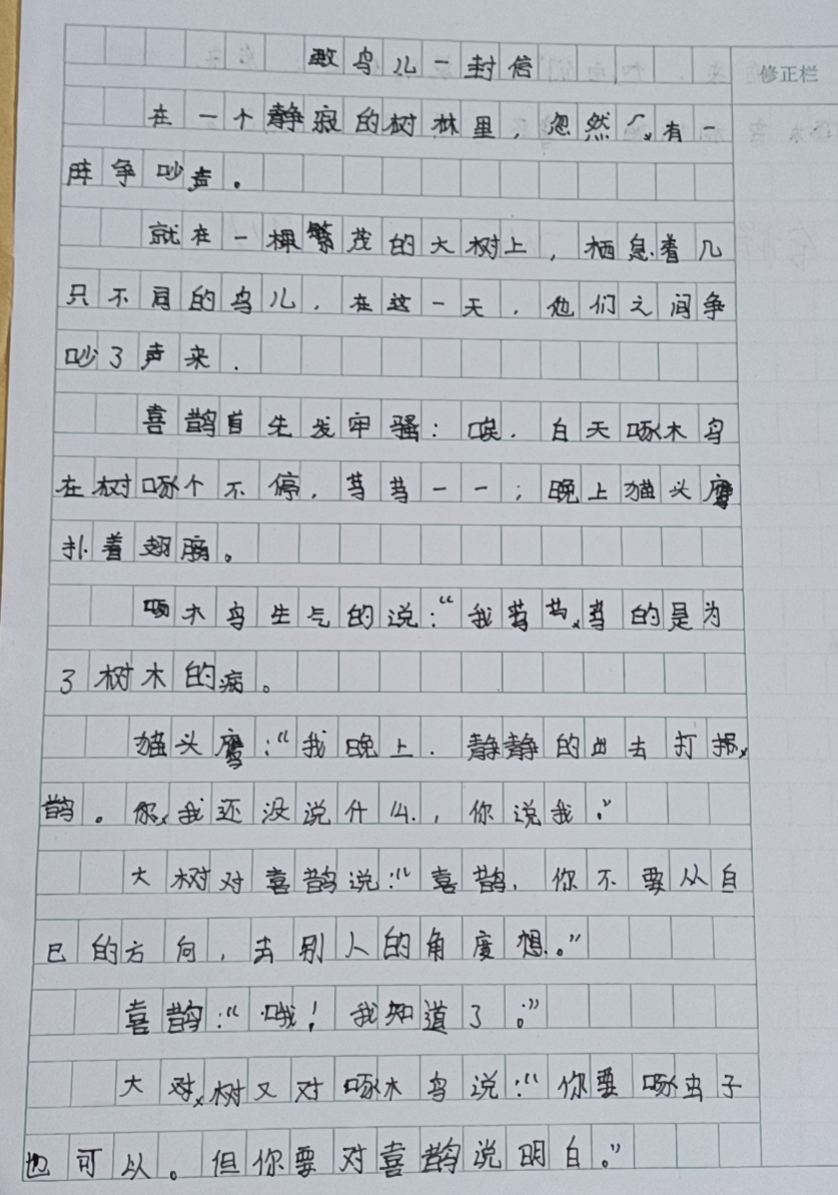 致鸟儿一封信
修正栏
在一个静寂的树林里，忽然有一
阵争吵声。
就在一棵繁茂的大树上，栖息着几
只不同的鸟儿，在这一天，他们之间争
吵了声来．
喜鹊首先发牢骚：唉．白天啄木鸟
在树啄个不停，一一；晚上猫头鹰
扑着翅膀。
啄木鸟生气的说：“我的是为
了树木的病。
猫头鹰：“我晚上．静静的出去打
鹊。我还没说什么，你说我。”
大树对喜鹊说：“喜鹊，你不要从自
已的方向，去别人的角度想。”
喜鹊：“哦！我知道了。”
大树又对啄木鸟说：“你要啄虫子
也可以。但你要对喜鹊说明白。”